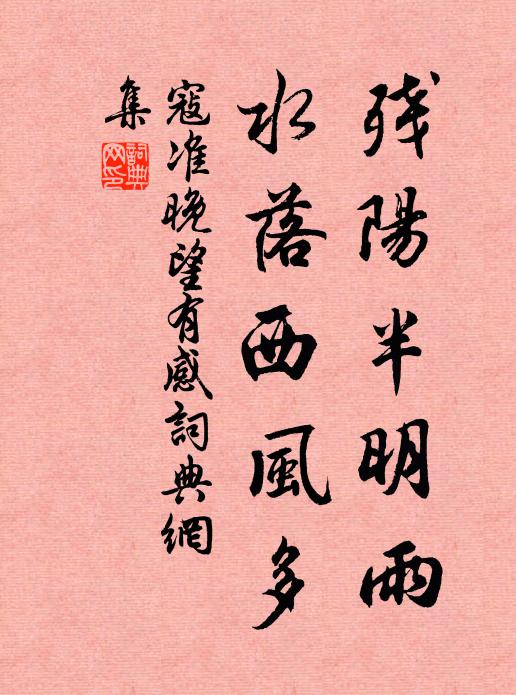 残陽半明雨
水落西風多
寇准晚望有感詞典網
集
詞典網印